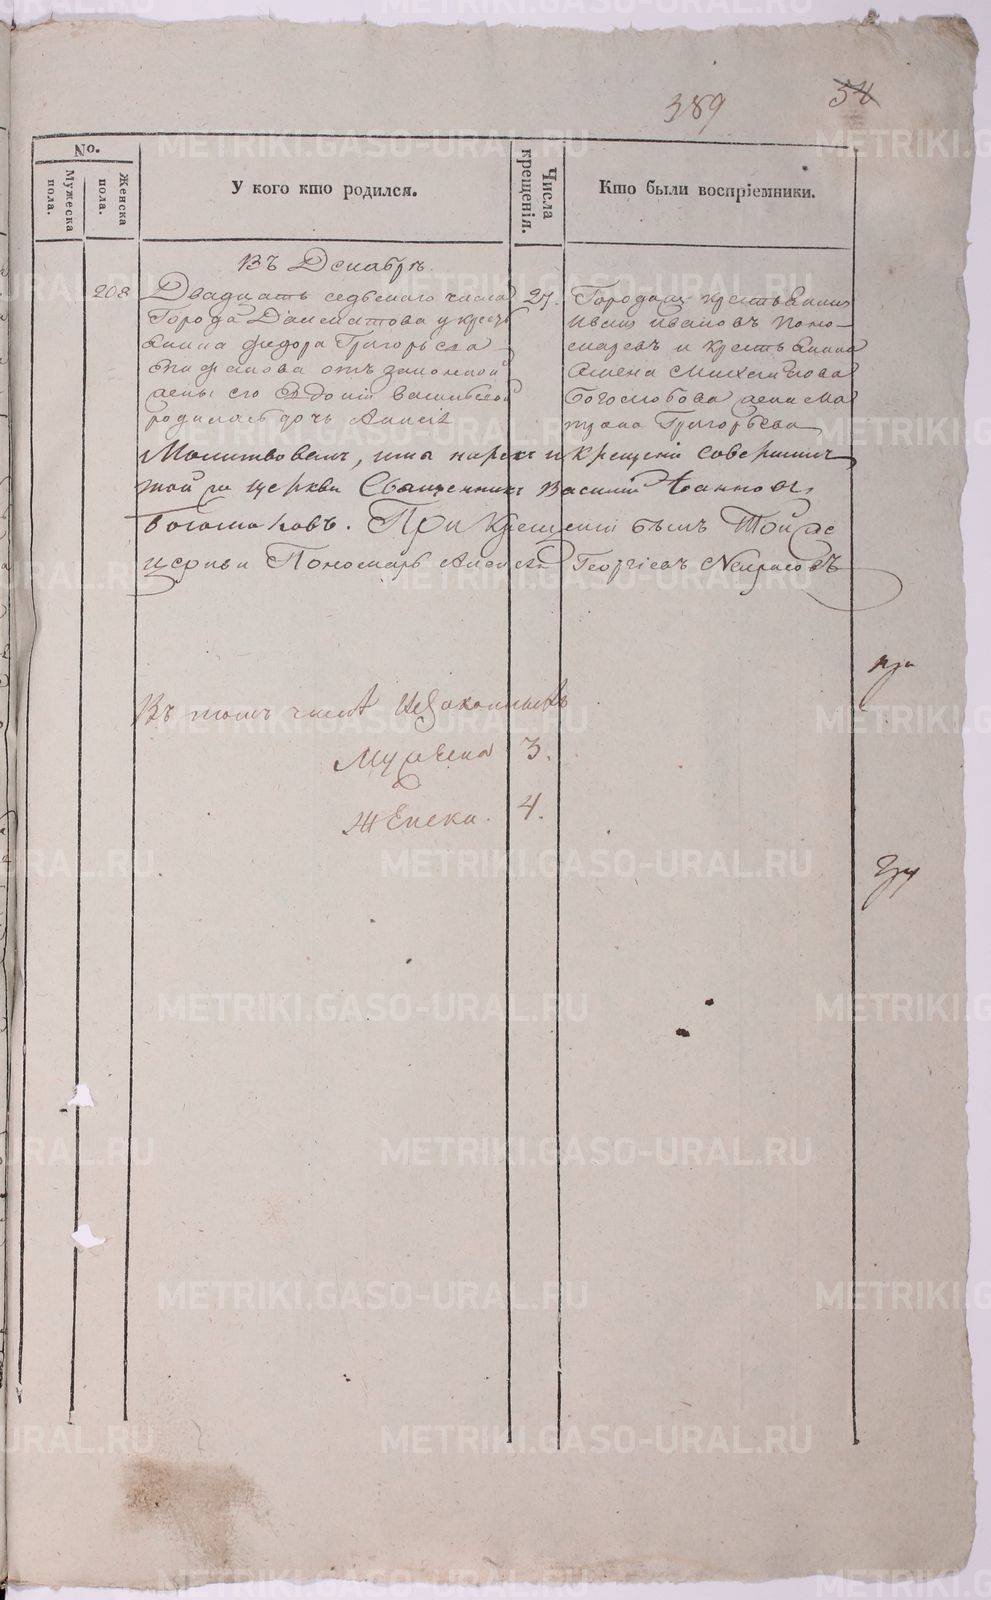 389
54
№.
Мужеска пола.
Женска пола.
У кого кто родился.
Числа крещенія.
Кто были воспріемники.
Въ Декабрѣ.
208 Двадцать седьмаго числа 27.
Города Далматова у кресть
янина Федора Григорьева
Епифанова отъ законной
жены его Евдокіи Васильевой
родилась дочь Анисія
Городищ крестьянинъ
Иванъ Ивановъ Поно-
маревъ и крестьянина
Семена Михайлова
Богословова жена Ма
трона Григорьева
Молитвовалъ, имя нарекъ и крещеніе совершилъ
той же церкви Священникъ Василій Іаннов
Богомоловъ. При Крещеніи былъ Той же
церкви Пономарь Алексѣй Георгіевъ Некрасовъ
Въ томъ числѣ Незаконныхъ
Мужеска 3.
Женска. 4.
METRIKI.GASO-URAL.RU